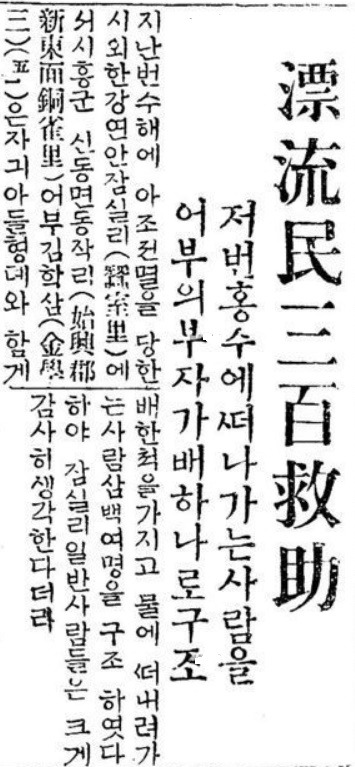 漂流民三百救助
저번홍수에ᄯᅥ나가는사람을
어부의부자가배하나로구조
지난번수해에 아조전멸을 당한
시외한강연안잠실리(蠶室里)에
서시흥군 신동면동작리(始興郡
新東面銅雀里)어부김학삼(金學
三)(五一)은자긔아들형뎨와 함게
배한척을가지고 물에 ᄯᅥ내려가
는사람삼백여명을 구조 하엿다
하야 잠실리일반사람들은 크게
감사히생각한다더라